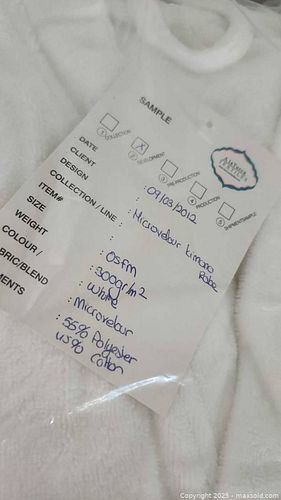 SAMPLE
1 COLLECTION
X 2 DEVELOPMENT
3 PRE PRODUCTION
4 PRODUCTION
5 SHIPMENT SAMPLE
DATE : 09/03/2012
CLIENT
DESIGN : Microvelour kimono Robe
COLLECTION / LINE :
ITEM# :
SIZE : OSFM
WEIGHT : 300gr/m2
COLOUR / : White
BRIC/BLEND : Microvelour
MENTS : 55% Polyester
45% Cotton
Copyright © 2025 - maxsold.com